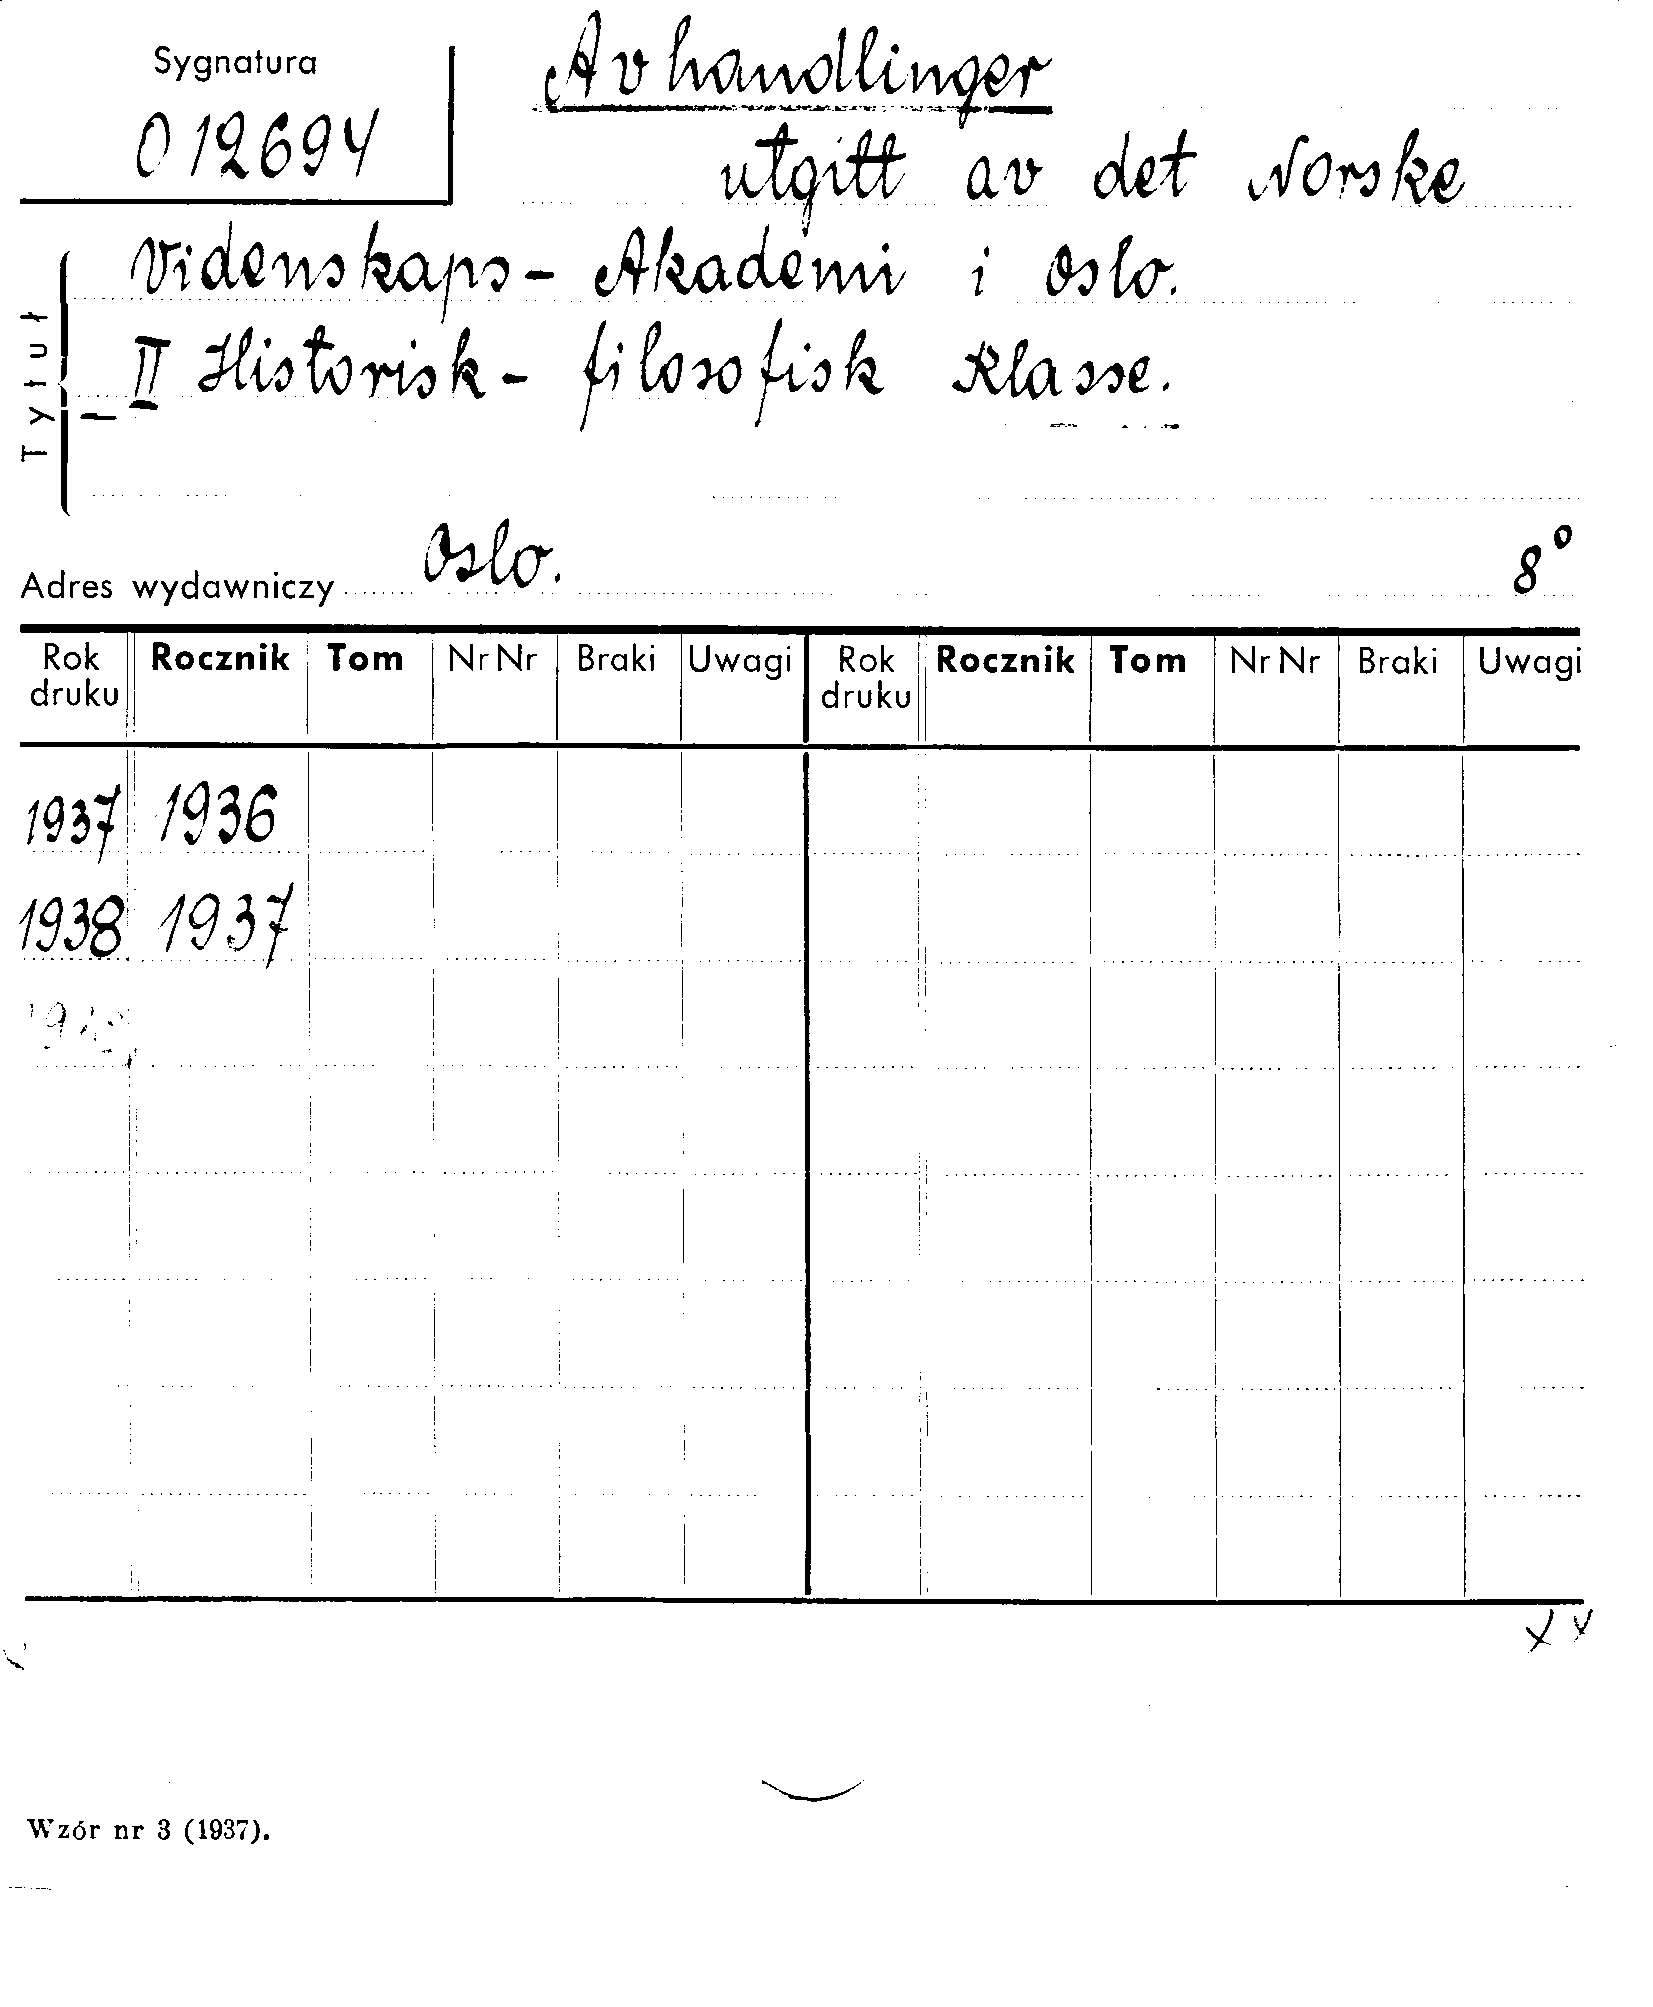 Sygnatura
012694
Avhandlinger
utgitt av det Norske
Videnskaps-Akademi i Oslo.
II Historisk-filosofisk Klasse.
Tytuł
Adres wydawniczy Oslo. 8°
Rok druku Rocznik Tom Nr Nr Braki Uwagi Rok druku Rocznik Tom Nr Nr Braki Uwagi
1937 1936
1938 1937
Wzór nr 3 (1937).